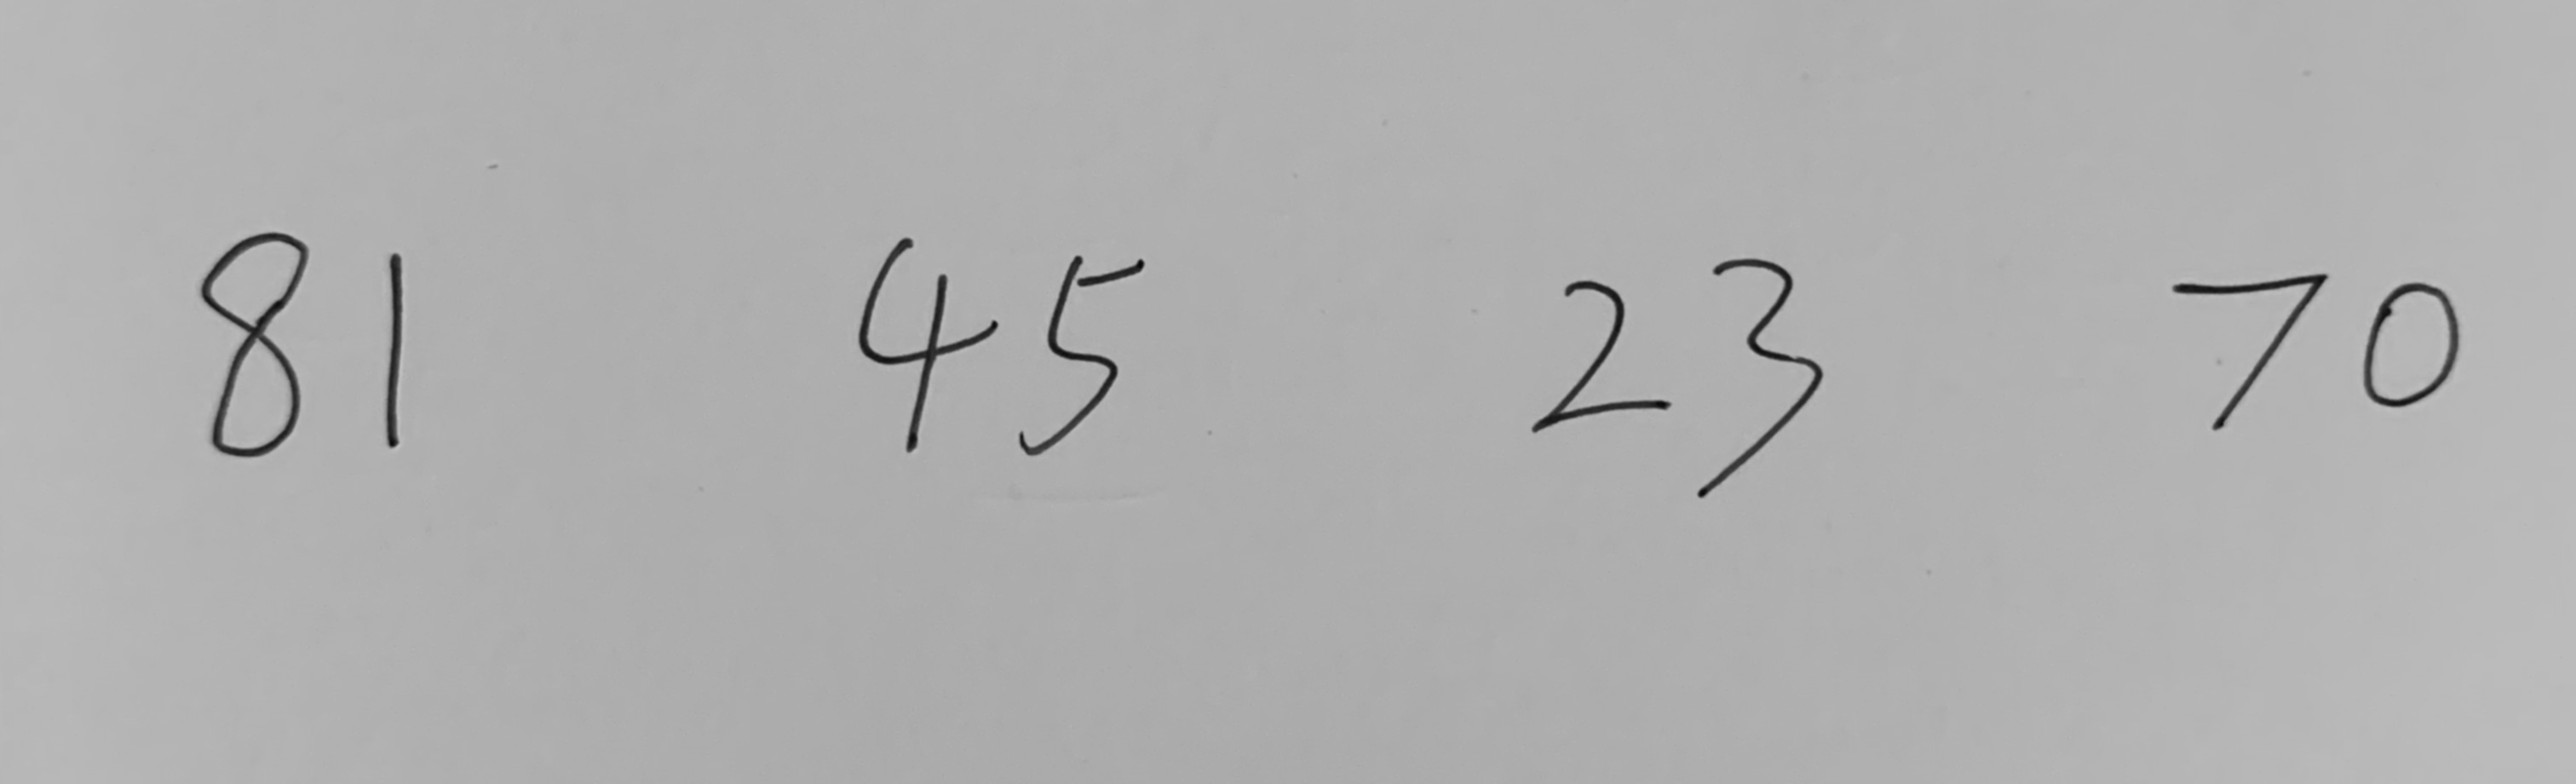 81 45 23 70